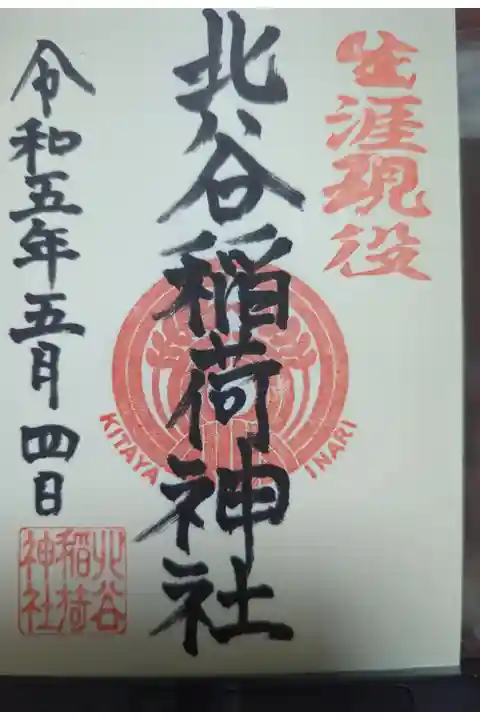 生涯現役
北谷稲荷神社
KITAYA INARI
令和五年五月四日
北谷
稲荷
神社